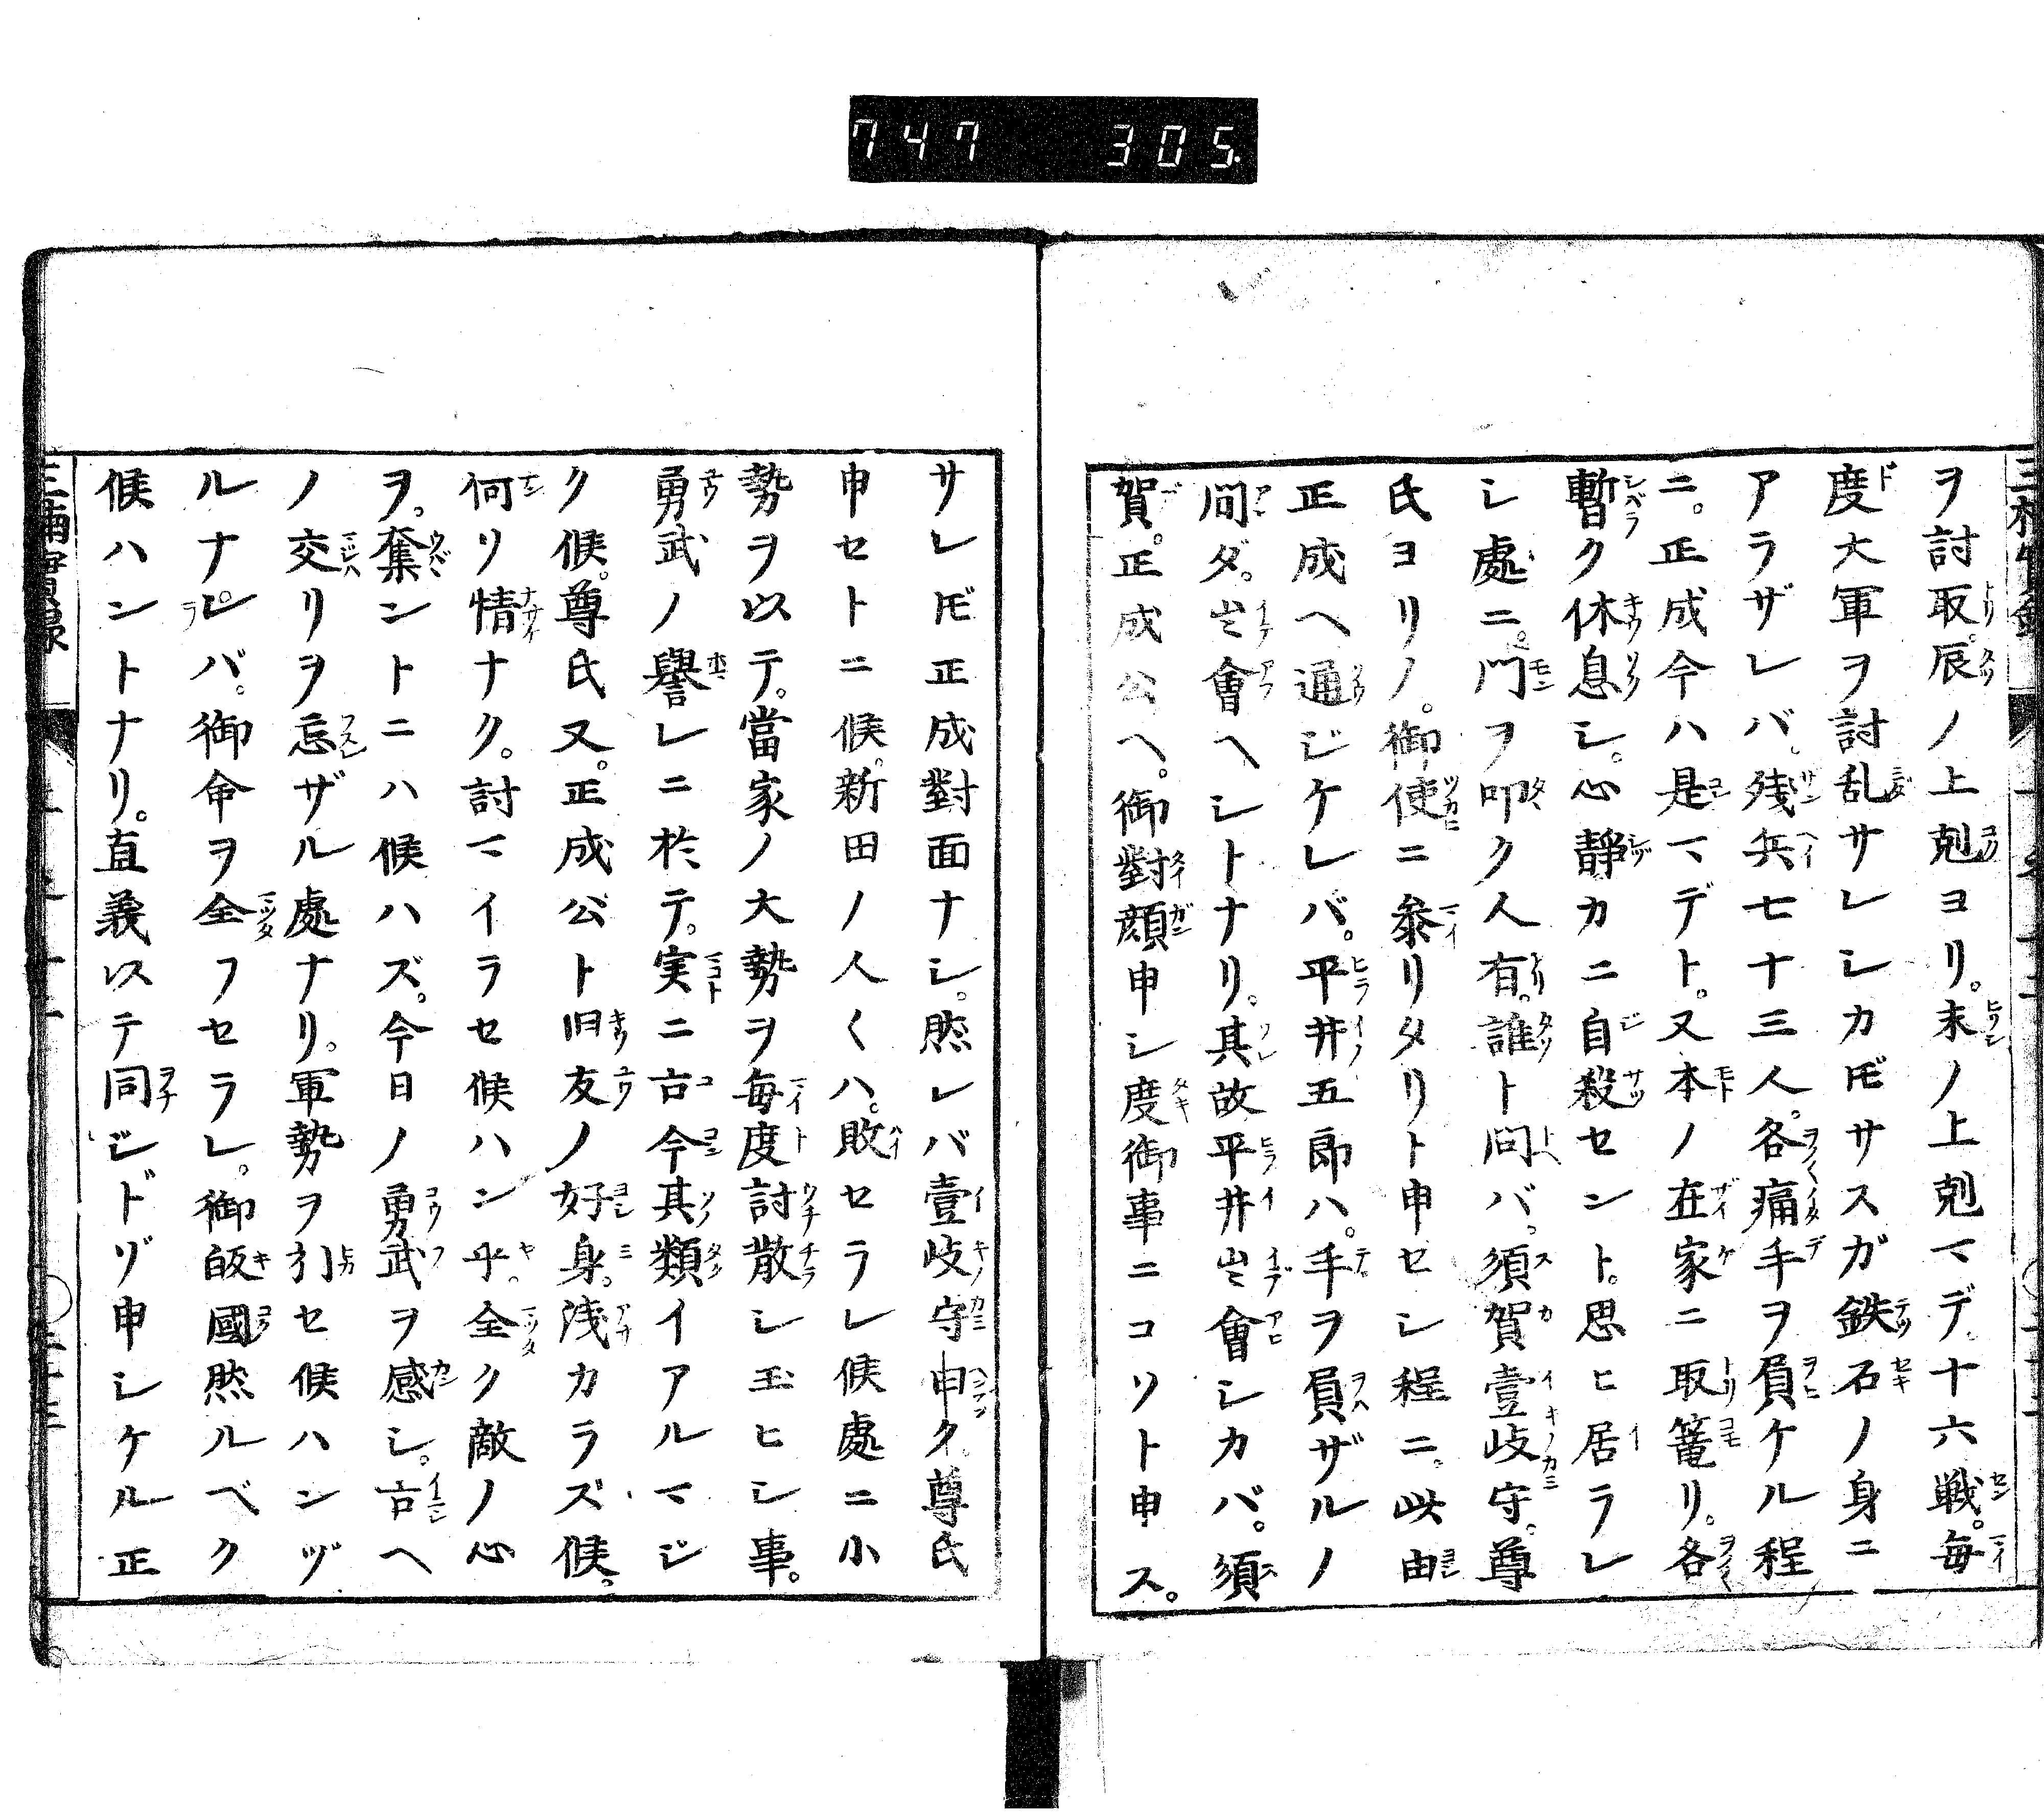 747 305.
ヲ討取。辰ノ上剋ヨリ。未ノ上剋マデ。十六戦。毎
度大軍ヲ討乱サレシカ𪜈サスガ鉄石ノ身ニ
アラザレバ。残兵七十三人。各痛手ヲ負ケル程
ニ。正成今ハ是マデト。又本ノ在家ニ取篭リ。各
暫ク休息シ。心静カニ自殺セント。思ヒ居ラレ
シ處ニ。門ヲ叩ク人有。誰ト問バ。須賀壹岐守。尊
氏ヨリノ。御使ニ参リタリト申セシ程ニ。此由
正成ヘ通ジケレバ。平井五郎ハ。手ヲ負ザルノ
間ダ。出會ヘシトナリ。其故平井出會シカバ。須
賀。正成公ヘ。御對顔申シ度御事ニコソト申ス。
サレ𪜈正成對面ナシ。然レバ壹岐守申ク。尊氏
申セトニ候。新田ノ人〱ハ。敗セラレ候處ニ小
勢ヲ以テ。當家ノ大勢ヲ毎度討散シ玉ヒシ事。
勇武ノ譽レニ於テ。実ニ古今其類イアルマジ
ク候。尊氏又。正成公ト旧友ノ好身。浅カラズ候。
何リ情ナク。討マイラセ候ハン乎。全ク敵ノ心
ヲ。奪ントニハ候ハズ。今日ノ勇武ヲ感シ。古ヘ
ノ交リヲ忘ザル處ナリ。軍勢ヲ引セ候ハンヅ
ルナレバ。御命ヲ全フセラレ。御皈國然ルベク
候ハントナリ。直義以テ同ジドゾ申シケル正